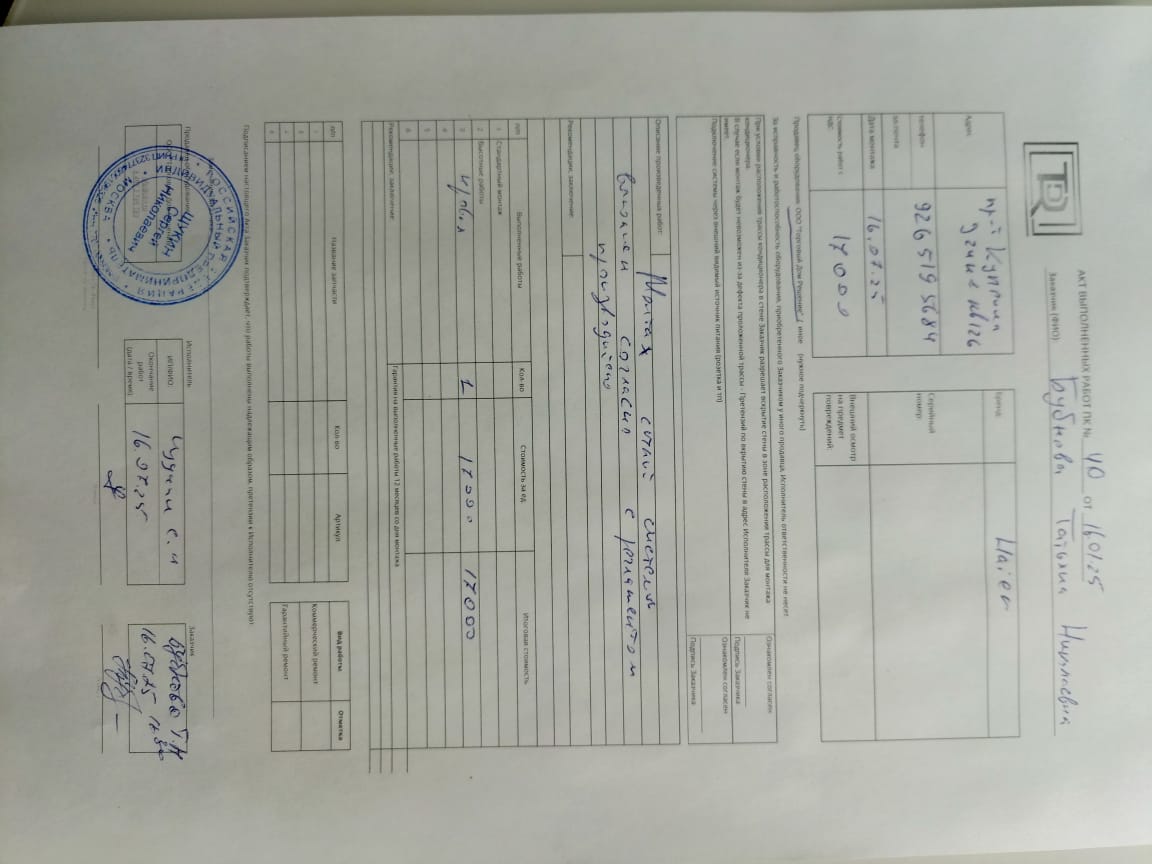 TDR
АКТ ВЫПОЛНЕННЫХ РАБОТ ПК № 40 от 160725
Заказчик (ФИО): Бубнова Татьяна Николаевна
Адрес
телефон 926 519 5684
эл.почта
Дата монтажа 16.07.25
Стоимость работ с НДС: 17000
Бренд: Haier
Серийный номер:
Внешний осмотр на предмет повреждений:
Продавец оборудования: ООО "Торговый Дом Решение" / иное (нужное подчеркнуть)
За исправность и работоспособность оборудования, приобретенного Заказчиком у иного продавца, Исполнитель ответственности не несет
При условии расположения трассы кондиционера в стене Заказчик разрешает вскрытие стены в зоне расположения трассы для монтажа кондиционера.
В случае если монтаж будет невозможен из-за дефекта проложенной трассы - Претензий по вскрытию стены в адрес Исполнителя Заказчик не имеет.
Подключение системы через внешний видимый источник питания (розетка и тп)
Ознакомлен согласен
Подпись Заказчика
Ознакомлен согласен
Подпись Заказчика
Описание произведенных работ: Монтаж сплит системы
согласно с регламентом
Рекомендации, заключение:
п/п Выполненные работы Кол-во Стоимость за ед Итоговая стоимость
1 Стандартный монтаж
2 Высотные работы
3 1 17000 17000
4
5
6
Рекомендации, заключение: Гарантия на выполненные работы 12 месяцев со дня монтажа
п/п Название запчасти Кол-во Артикул
1
2
3
4
Вид работы Отметка
Коммерческий ремонт
Гарантийный ремонт
Подписанием настоящего Акта Заказчик подтверждает, что работы выполнены надлежащим образом, претензии к Исполнителю отсутствуют:
Продавец оборудования
РОССИЙСКАЯ ФЕДЕРАЦИЯ
ИНДИВИДУАЛЬНЫЙ ПРЕДПРИНИМАТЕЛЬ
МОСКВА
ЩУКИН
Сергей
Николаевич
Исполнитель
ИП/ФИО: Щукин С.Н
Окончание работ (дата / время): 16.07.25
Заказчик
Бубнова Т.Н
16.07.25